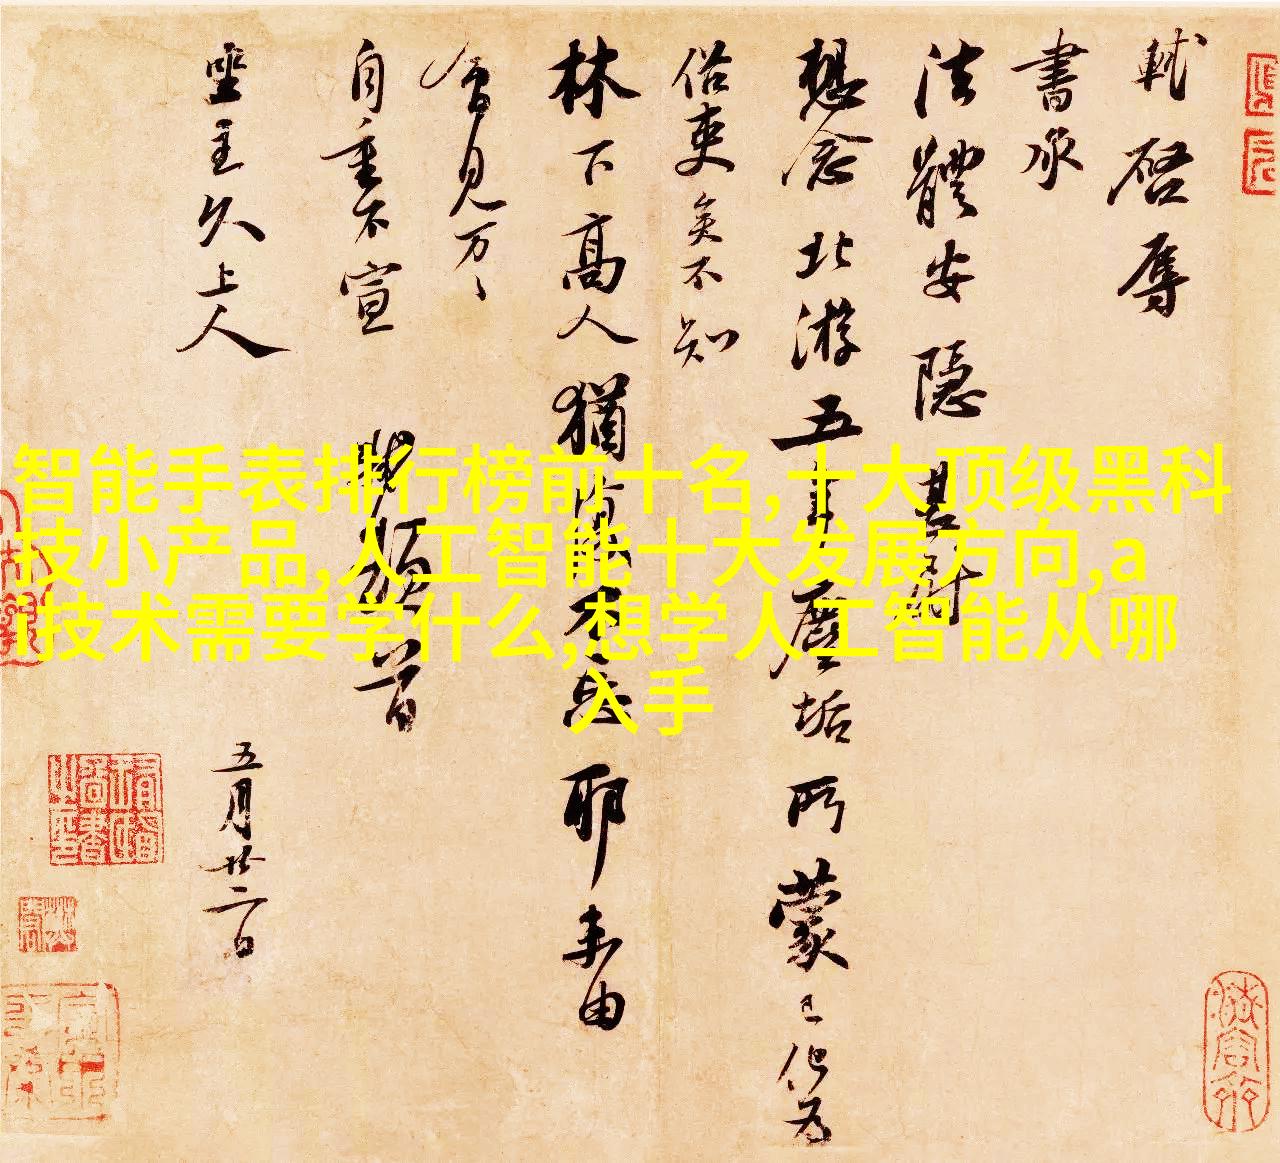 軾啓辱
書承
法體安隱甚慰
想念北游五年塵垢所蒙已化為
俗吏矣不知
林下高人猶復不忘耶未由
會見万〻
自重不宣
軾頓首
坐主久上人
五月廿二日
智能手表排行榜前十名,十大顶级黑科
技小产品,人工智能十大发展方向,a
i技术需要学什么,想学人工智能从哪
入手